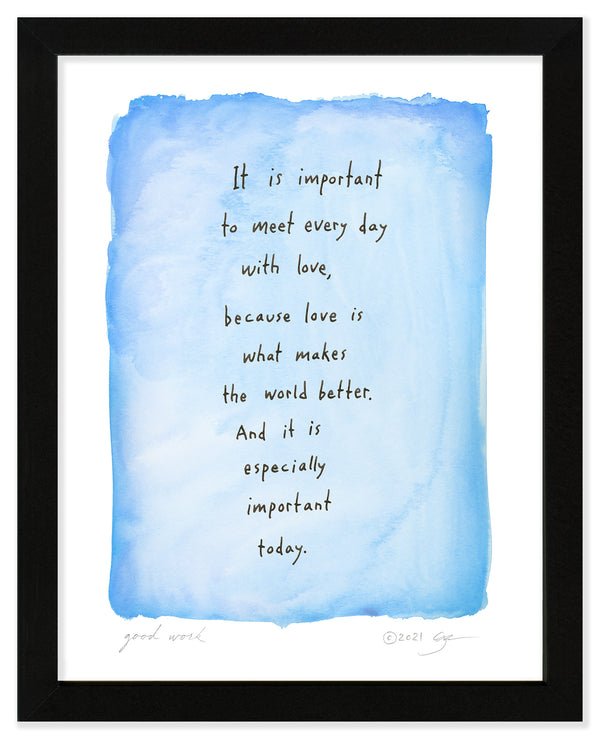 It is important
to meet every day
with love,
because love is
what makes
the world better.
And it is
especially
important
today.
good work
©2021